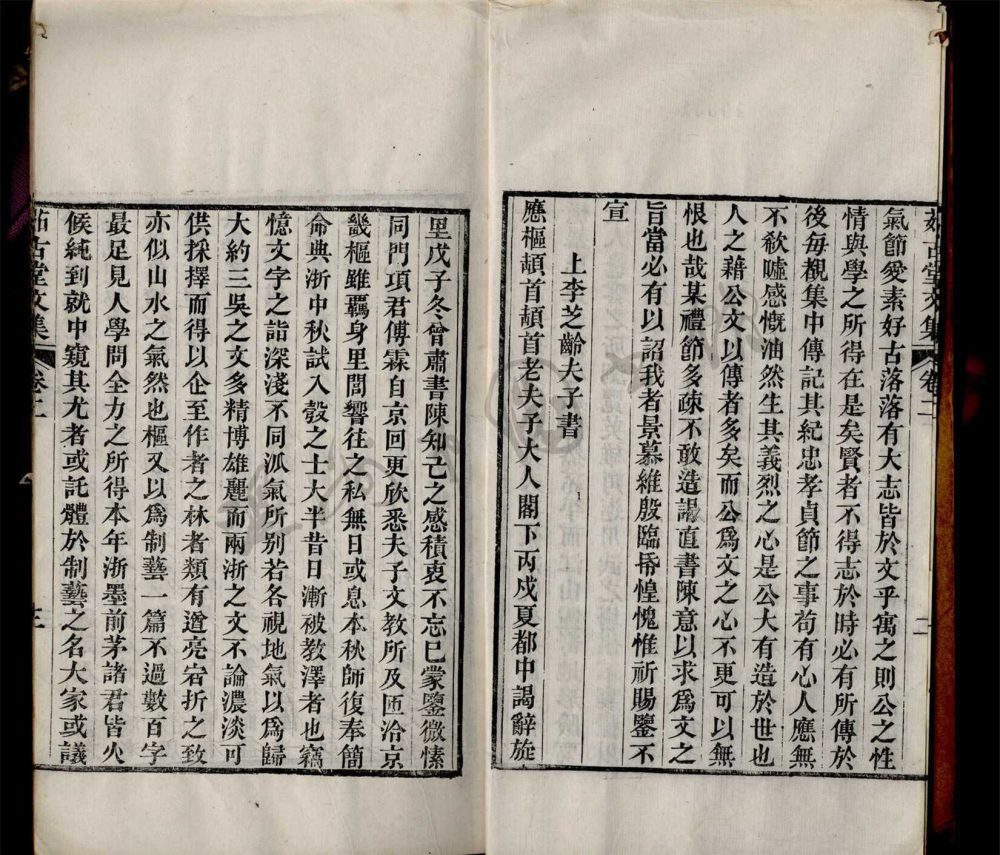 茹古堂文集 卷二 二
氣節愛素好古落落有大志皆於文乎寓之則公之性
情與學之所得在是矣賢者不得志於時必有所傳於
後每覩集中傳記其紀忠孝貞節之事苟有心人應無
不欷噓感慨油然生其義烈之心是公大有造於世也
人之藉公文以傳者多矣而公爲文之心不更可以無
恨也哉某禮節多疎不敢造謁直書陳意以求爲文之
旨當必有以詔我者景慕維殷臨㫿惶愧惟祈賜鑒不
宣
上李芝齡夫子書
應樞頓首頓首老夫子大人閣下丙戍夏都中謁辭旋
里戊子冬曾肅書陳知己之感積衷不忘巳蒙鑒微愫
同門項君傅霖自京回更欣悉夫子文教所及匝洽京
畿樞雖羈身里閭響往之私無日或息本秋師復奉簡
命典浙中秋試入彀之士大半昔日漸被教澤者也竊
憶文字之詣深淺不同泒氣所別若各視地氣以爲歸
大約三吳之文多精博雄麗而兩浙之文不論濃淡可
供採擇而得以企至作者之林者類有遒亮宕折之致
亦似山水之氣然也樞又以爲制藝一篇不過數百字
最足見人學問全力之所得本年浙墨前茅諸君皆火
候純到就中窺其尤者或託體於制藝之名大家或議
茹古堂文集 卷二 三